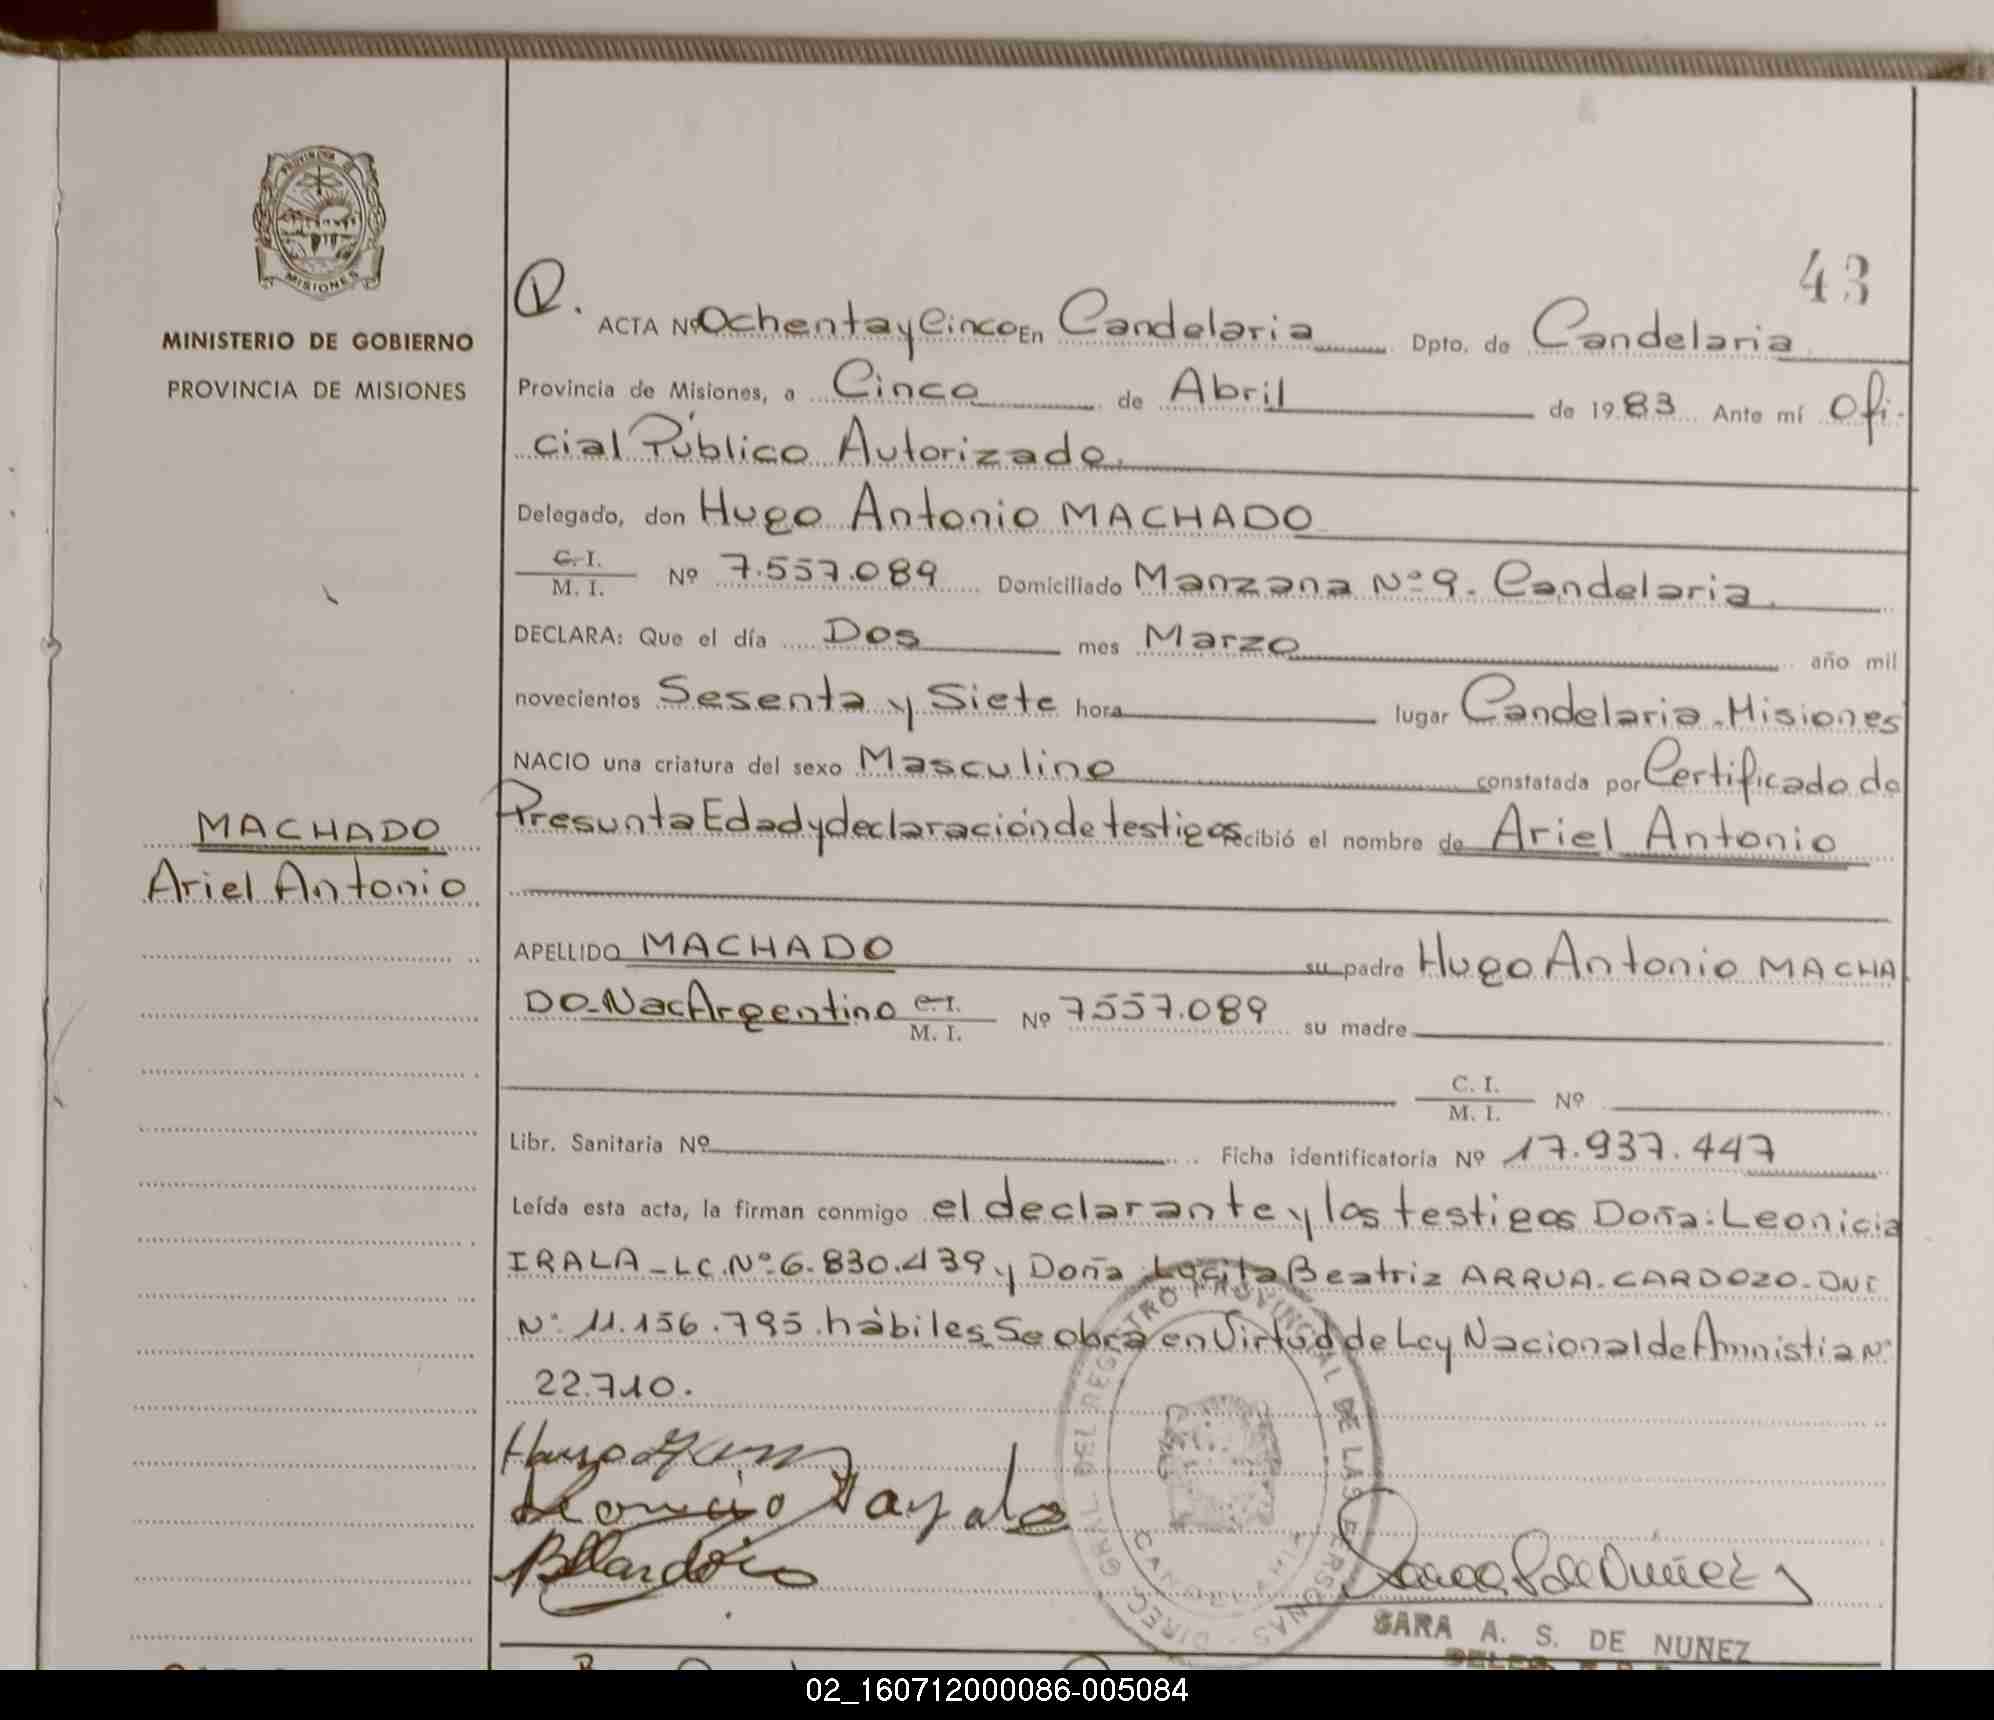 PROVINCIA DE
MISIONES
MINISTERIO DE GOBIERNO
PROVINCIA DE MISIONES
43
ACTA Nº Ochenta y Cinco En Candelaria Dpto. de Candelaria
Provincia de Misiones, a Cinco de Abril de 1983 Ante mí Ofi-
cial Público Autorizado.
Delegado, don Hugo Antonio MACHADO
C. I. / M. I. Nº 7.557.089 Domiciliado Manzana Nº 9. Candelaria.
DECLARA: Que el día Dos mes Marzo año mil
novecientos Sesenta y Siete hora lugar Candelaria. Misiones
NACIO una criatura del sexo Masculino constatada por Certificado de
Presunta Edad y declaración de testigos recibió el nombre de Ariel Antonio
MACHADO
Ariel Antonio
APELLIDO MACHADO su padre Hugo Antonio MACHA
DO-Nac Argentino C. I. / M. I. Nº 7557.089 su madre
C. I. / M. I. Nº
Libr. Sanitaria Nº Ficha identificatoria Nº 17.937.447
Leída esta acta, la firman conmigo el declarante y los testigos Doña: Leonicia
IRALA - LC. Nº 6.830.439 y Doña Beatriz ARRUA-CARDOZO-DNI
Nº 11.156.795. hábiles. Se obra en Virtud de Ley Nacional de Amnistia Nº
22.710.
DIREC. GRAL. DEL REGISTRO PROVINCIAL DE LAS PERSONAS
SARA A. S. DE NUÑEZ
02_160712000086-005084